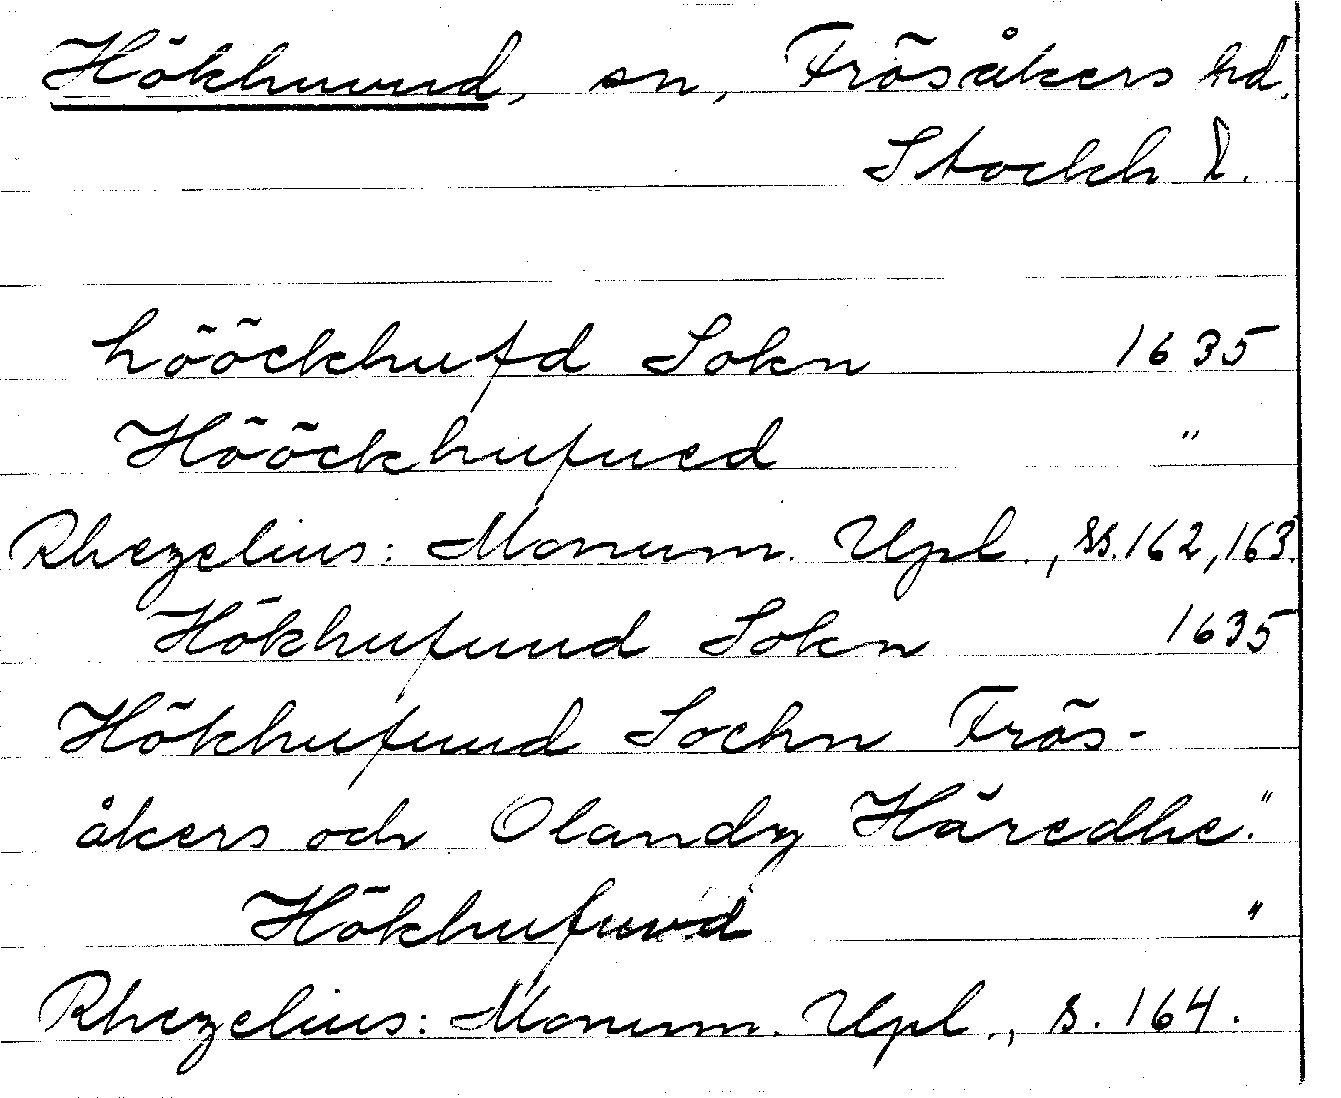 Hökhuvud, sn, Frösåkers hd.
Stockh l.
hööckhufd Sokn 1635
Hööckhufued "
Rhezelius: Monum. Upl., ss. 162, 163.
Hökhufuud Sokn 1635
Hökhufuud Sochn Frös-
åkers och Olandz Häredhe. "
Hökhufuud "
Rhezelius: Monum. Upl., s. 164.